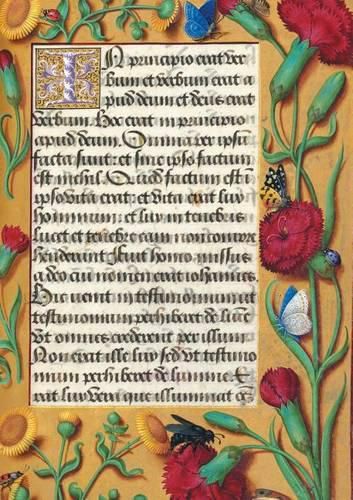 In principio erat ver
bum et verbum erat a
pud deum et deus erat
verbum. Hoc erat in principio
apud deum. Omnia per ipsū
facta sunt: et sine ipso factum
est nichil. Quod factum est ī
ipso vita erat: et vita erat lux
hominum: et lux in tenebris
lucet et tenebre eam non compre
henderunt. Fuit homo missus
a deo cui nomen erat iohannes.
Hic venit in testimonium ut
testimonium perhiberet de lūīe
Ut omnes crederent per illum.
Non erat ille lux sed ut testimo
nium perhiberet de lumine. E
rat lux vera que illuminat